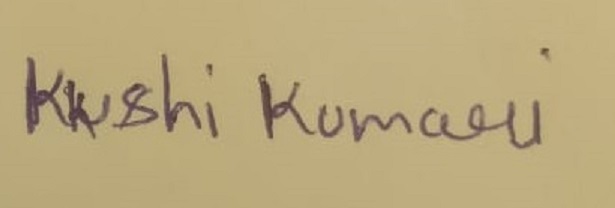 Kushi Kumari